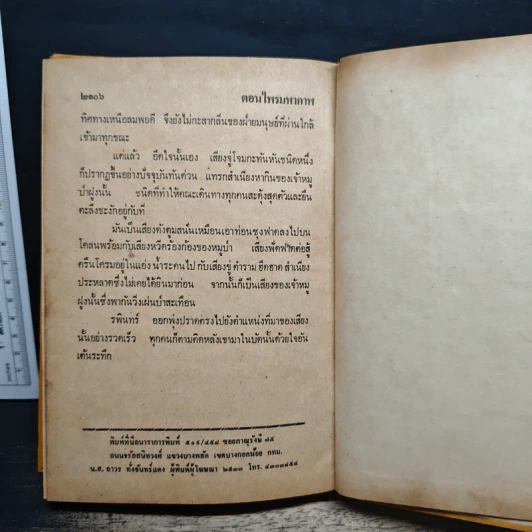 ๒๑๐๖ ตอนไพรมหากาฬ
ทิศทางเหนือลมพอดี จึงยังไม่กะสากลิ่นของฝ่ายมนุษย์ที่ผ่านใกล้
เข้ามาทุกขณะ
แต่แล้ว อึดใจนั้นเอง เสียงจู่โจมกะทันหันชนิดหนึ่ง
ก็ปรากฏขึ้นอย่างปัจจุบันทันด่วน แทรกสำเนียงหากินของเจ้าหมู
ป่าฝูงนั้น ชนิดที่ทำให้คณะเดินทางทุกคนสะดุ้งสุดตัวและยืน
ตะลึงชะงักอยู่กับที่
มันเป็นเสียงดังตูมสนั่นเหมือนเอาท่อนซุงฟาดลงไปบน
โคลนพร้อมกับเสียงหวีดร้องก้องของหมูป่า เสียงฟัดฟาดต่อสู้
ครืนโครมอยู่ในแอ่ง น้ำระคนไป กับเสียงขู่ คำราม ฮึดฮาด สำเนียง
ประหลาดซึ่งไม่เคยได้ยินมาก่อน จากนั้นก็เป็นเสียงของเจ้าหมู
ฝูงนั้นซึ่งพากันวิ่งเผ่นป่าสะเทือน
รพินทร์ ออกพุ่งปราดตรงไปยังตำแหน่งที่มาของเสียง
นั้นอย่างรวดเร็ว ทุกคนก็ตามติดหลังเขามาในบัดนั้นด้วยใจอัน
เต้นระทึก
พิมพ์ที่นีอนาราการพิมพ์ ๕๐๑/๔๕๘ ซอยภาณุรังษี ๗๕
ถนนจรัลสนิทวงศ์ แขวงบางพลัด เขตบางกอกน้อย กทม.
น.ส. ถาวร ตั้งจันทร์แดง ผู้พิมพ์ผู้โฆษณา ๒๕๓๓ โทร. ๔๓๓๓๔๕๘